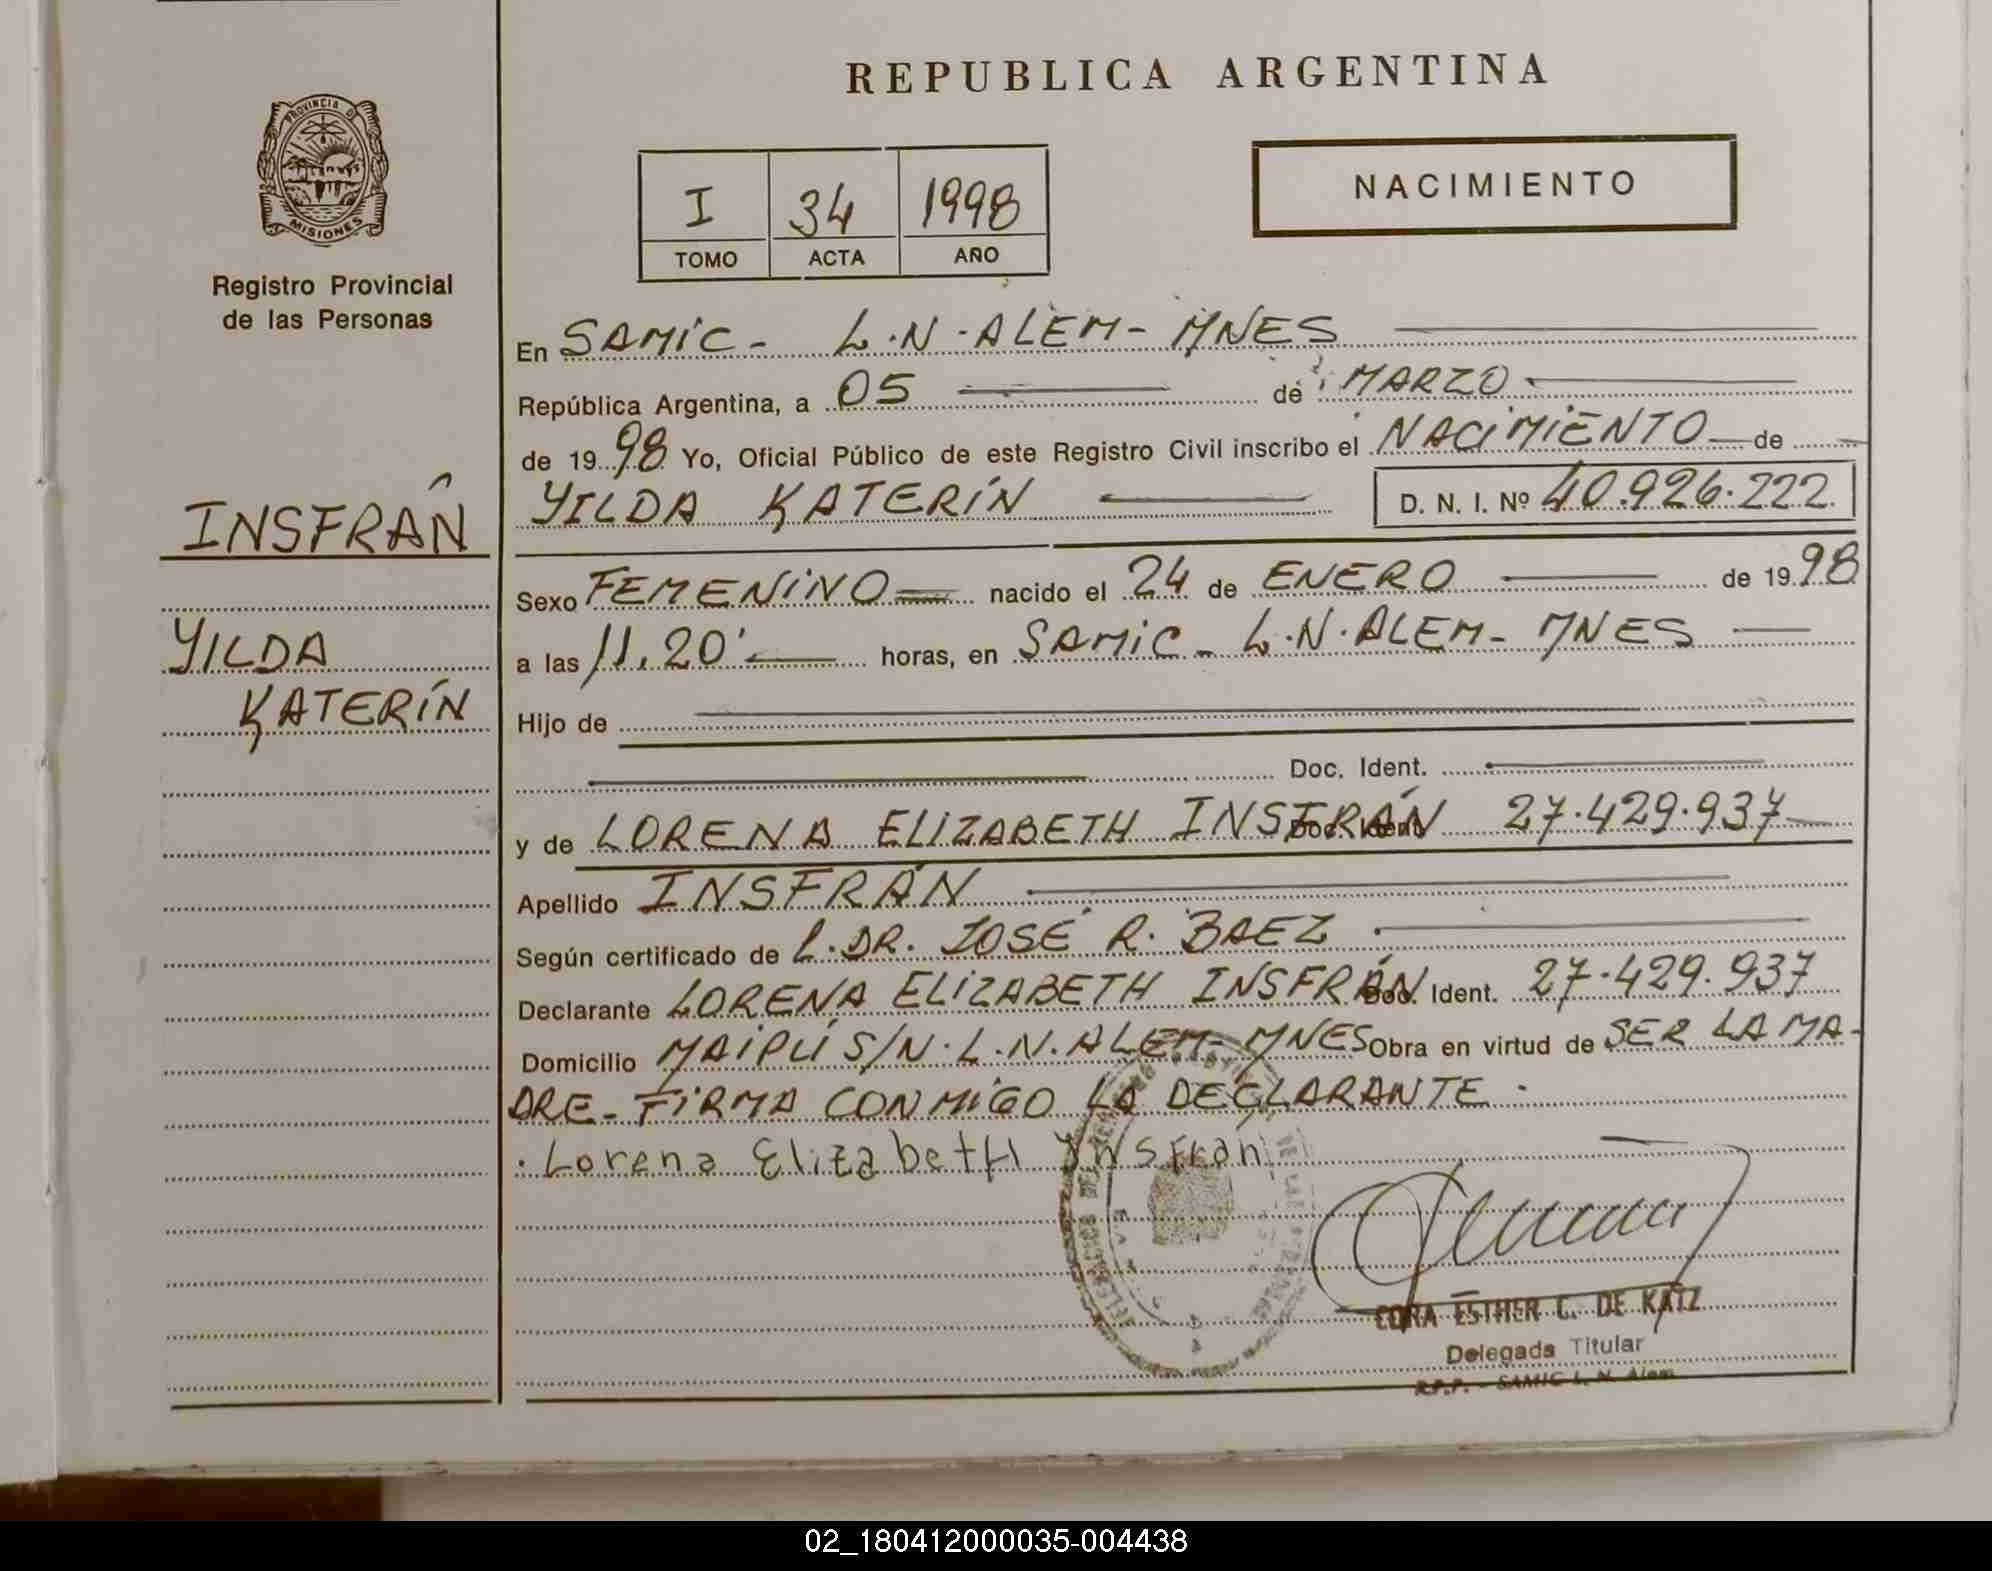 REPUBLICA ARGENTINA
PROVINCIA DE
MISIONES
Registro Provincial
de las Personas
I 34 1998
TOMO ACTA AÑO
NACIMIENTO
En SAMIC - L.N. ALEM - MNES
República Argentina, a 05 de MARZO
de 1998 Yo, Oficial Público de este Registro Civil inscribo el NACIMIENTO de
YILDA KATERÍN D. N. I. Nº 40.926.222
INSFRÁN
YILDA
KATERÍN
Sexo FEMENINO nacido el 24 de ENERO de 1998
a las 11,20' horas, en SAMIC - L.N. ALEM - MNES
Hijo de
Doc. Ident.
y de LORENA ELIZABETH INSFRÁN Doc. Ident. 27.429.937
Apellido INSFRÁN
Según certificado de L. DR. JOSÉ R. BAEZ
Declarante LORENA ELIZABETH INSFRÁN Doc. Ident. 27.429.937
Domicilio MAIPÚ S/N. L.N. ALEM - MNES Obra en virtud de SER LA MA-
DRE - FIRMA CONMIGO LA DECLARANTE.
. Lorena Elizabeth Ynsfran
CORA ESTHER C. DE KATZ
Delegada Titular
R.P.P. - SAMIC L. N. Alem
02_180412000035-004438